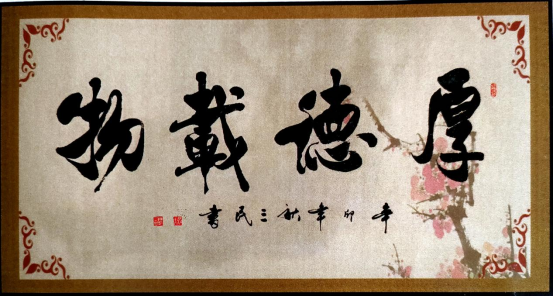 厚德載物
辛卯年秋三民書